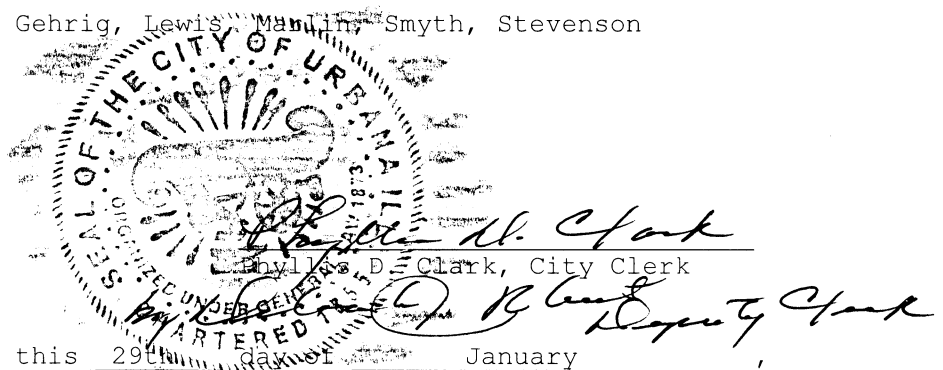 Gehrig, Lewis, Marlin, Smyth, Stevenson
SEAL OF THE CITY OF URBANA ILL
ORGANIZED UNDER GENERAL LAW 1873
CHARTERED 1855
Phyllis D. Clark
Phyllis D. Clark, City Clerk
by Deputy Clerk
this 29th day of January ,